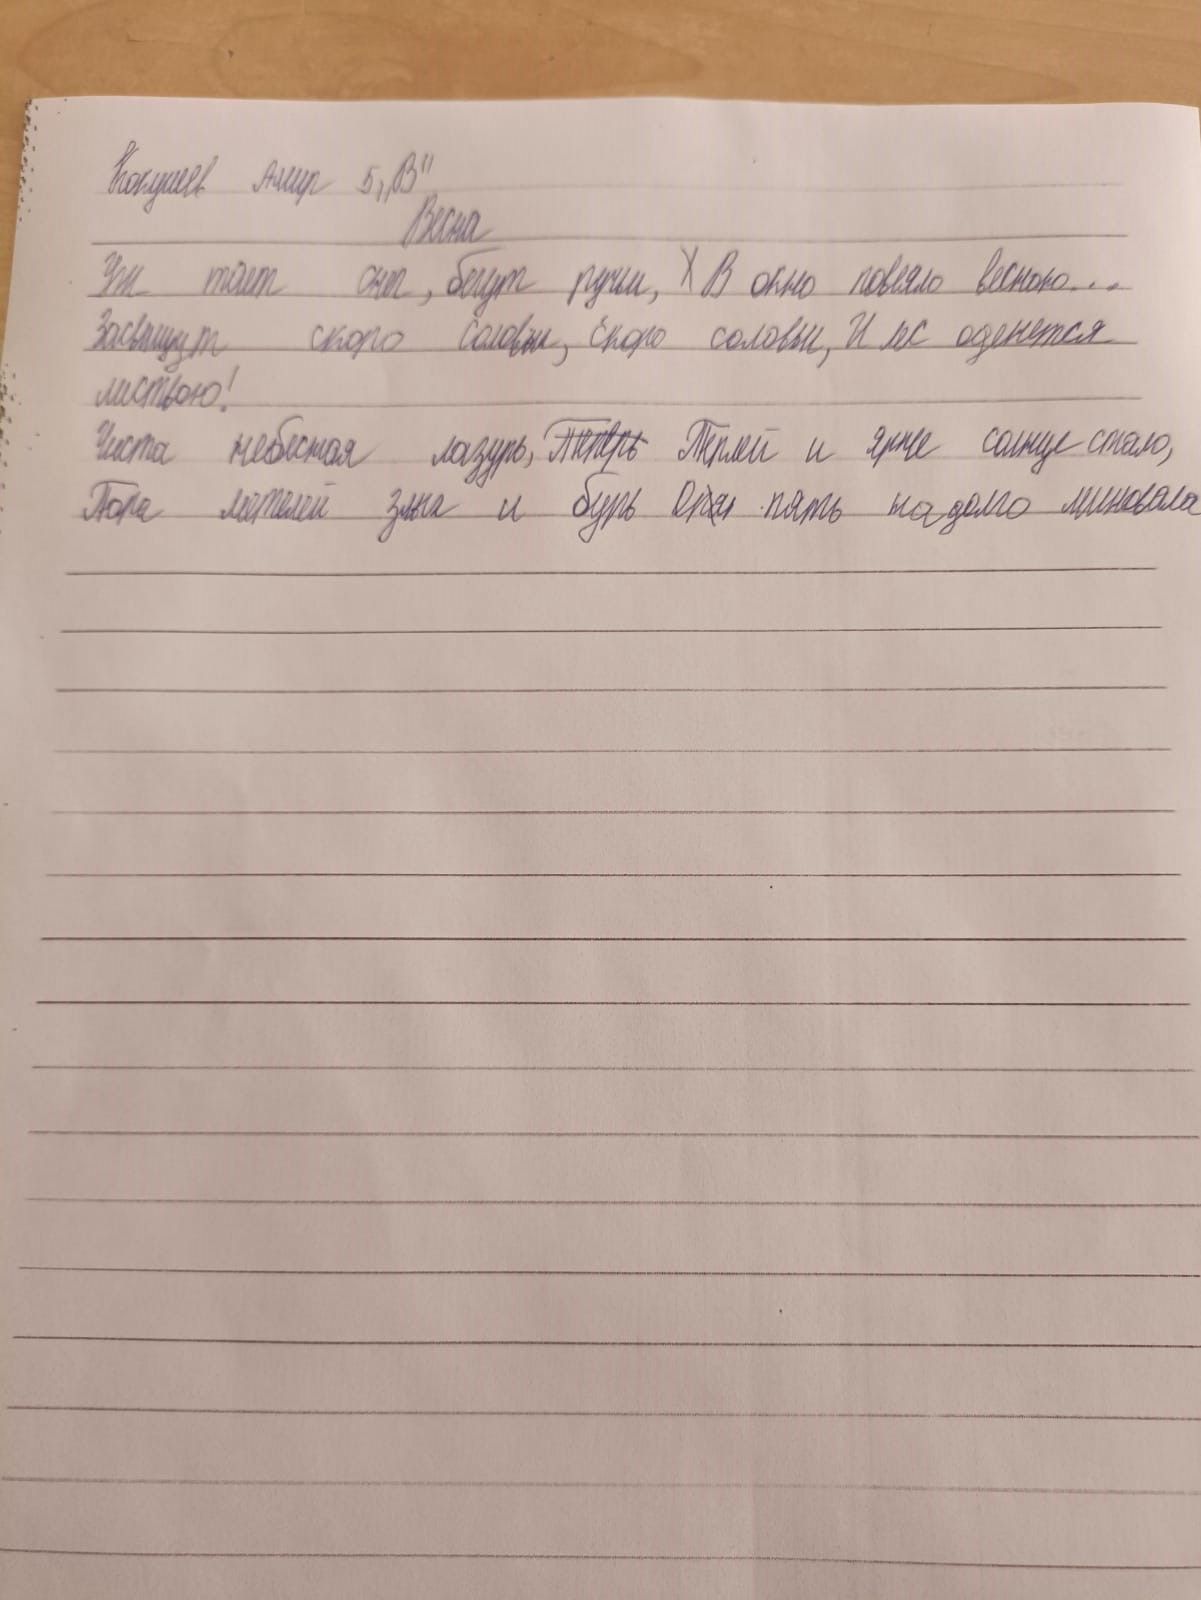 Амир 5 „В"
Весна
Уж тает снег, бегут ручьи, В окно повеяло весною...
Засвищут скоро соловьи, скоро соловьи, И лес оденется
листвою!
Чиста небесная лазурь, Теперь Теплей и ярче солнце стало,
Пора метелей злых и бурь пять надолго миновала